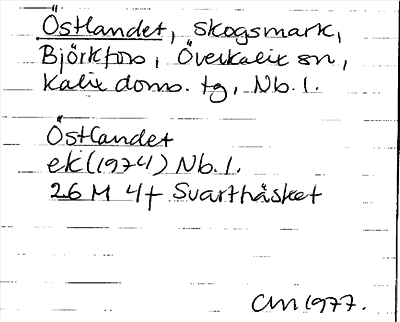 Östlandet, skogsmark,
Björkfors, Överkalix sn,
Kalix doms. tg, Nb. l.
Östlandet
ek (1974) Nb. l.
26 M 4f Svarthåsket
CM 1977.